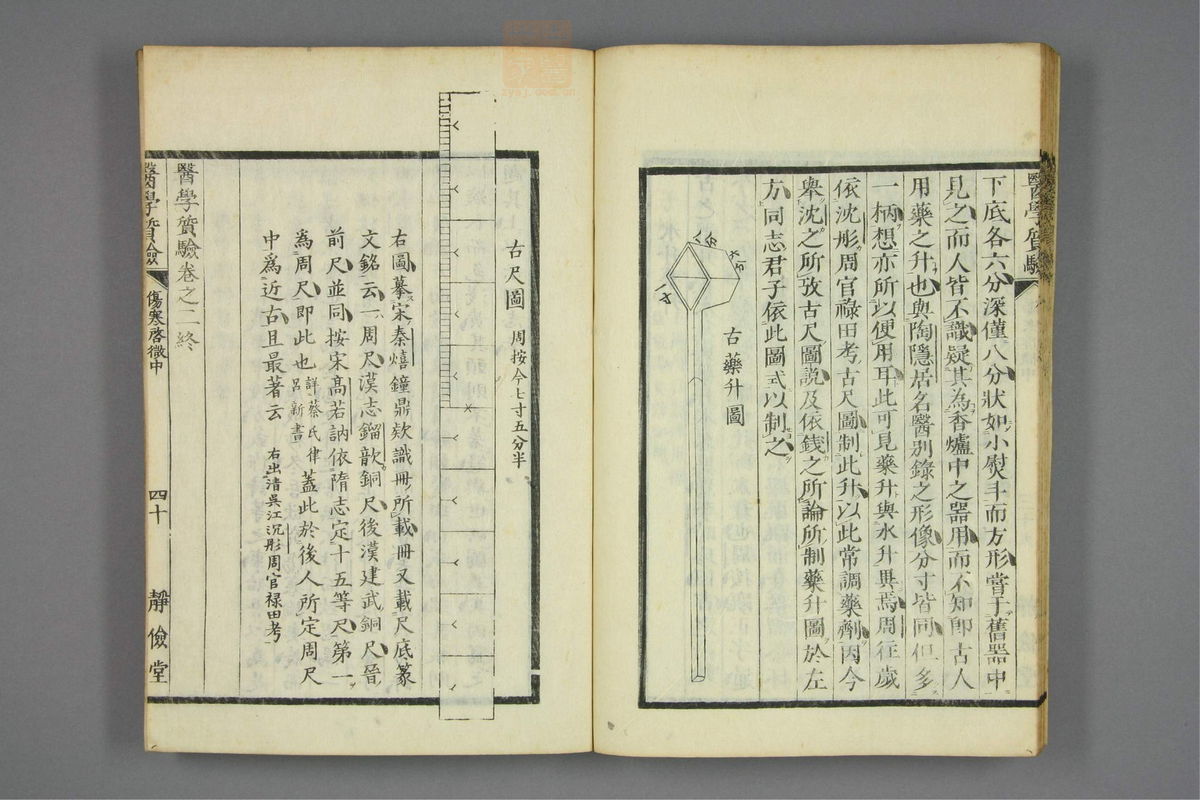 下底各六分深僅八分狀如小熨斗而方形嘗于舊器中
見之而人皆不識疑其為香爐中之器用而不知即古人
用藥之升也與陶隱居名醫別錄之形像分寸皆同但多
一柄想亦所以便用耳此可見藥升與水升異焉周往歲
依沈彤周官祿田考古尺圖制此升以此常調藥劑因今
舉沈之所攷古尺圖說及依錢之所論所制藥升圖於左
方同志君子依此圖式以制之
古藥升圖
古尺圖 周按今七寸五分半
右圖摹宋秦熺鐘鼎欵識冊所載冊又載尺底篆
文銘云一周尺漢志鎦歆銅尺後漢建武銅尺晉
前尺並同按宋高若訥依隋志定十五等尺第一
為周尺即此也詳蔡氏律呂新書蓋此於後人所定周尺
中為近古且最著云 右出清吳江沉彤周官祿田考
醫學質驗卷之二終
醫學質驗 傷寒啓微中 四十 靜儉堂